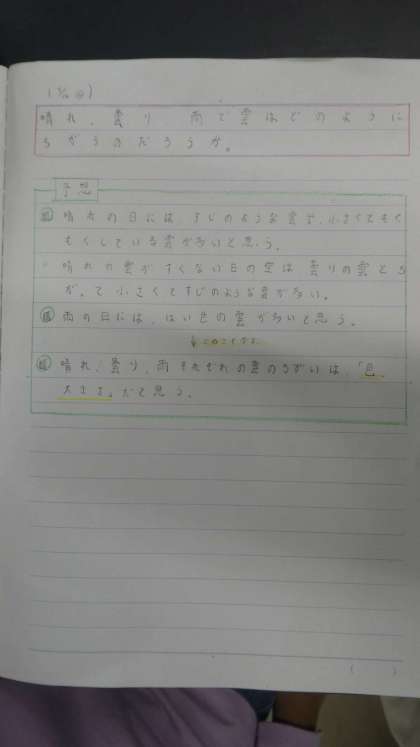 晴れ、曇り 雨で雲はどのように
ちがうのだろうか。
予想
晴れの日には、すじのような雲や、小さくてもく
もくしている雲が多いと思う。
晴れの雲がすくない日の空は曇りの雲とち
が、て小さくてすじのような雲が多い。
雨の日には、はい色の雲が多いと思う。
晴れ、曇り、雨それぞれの雲のちがいは、「色、
大きさ」だと思う。